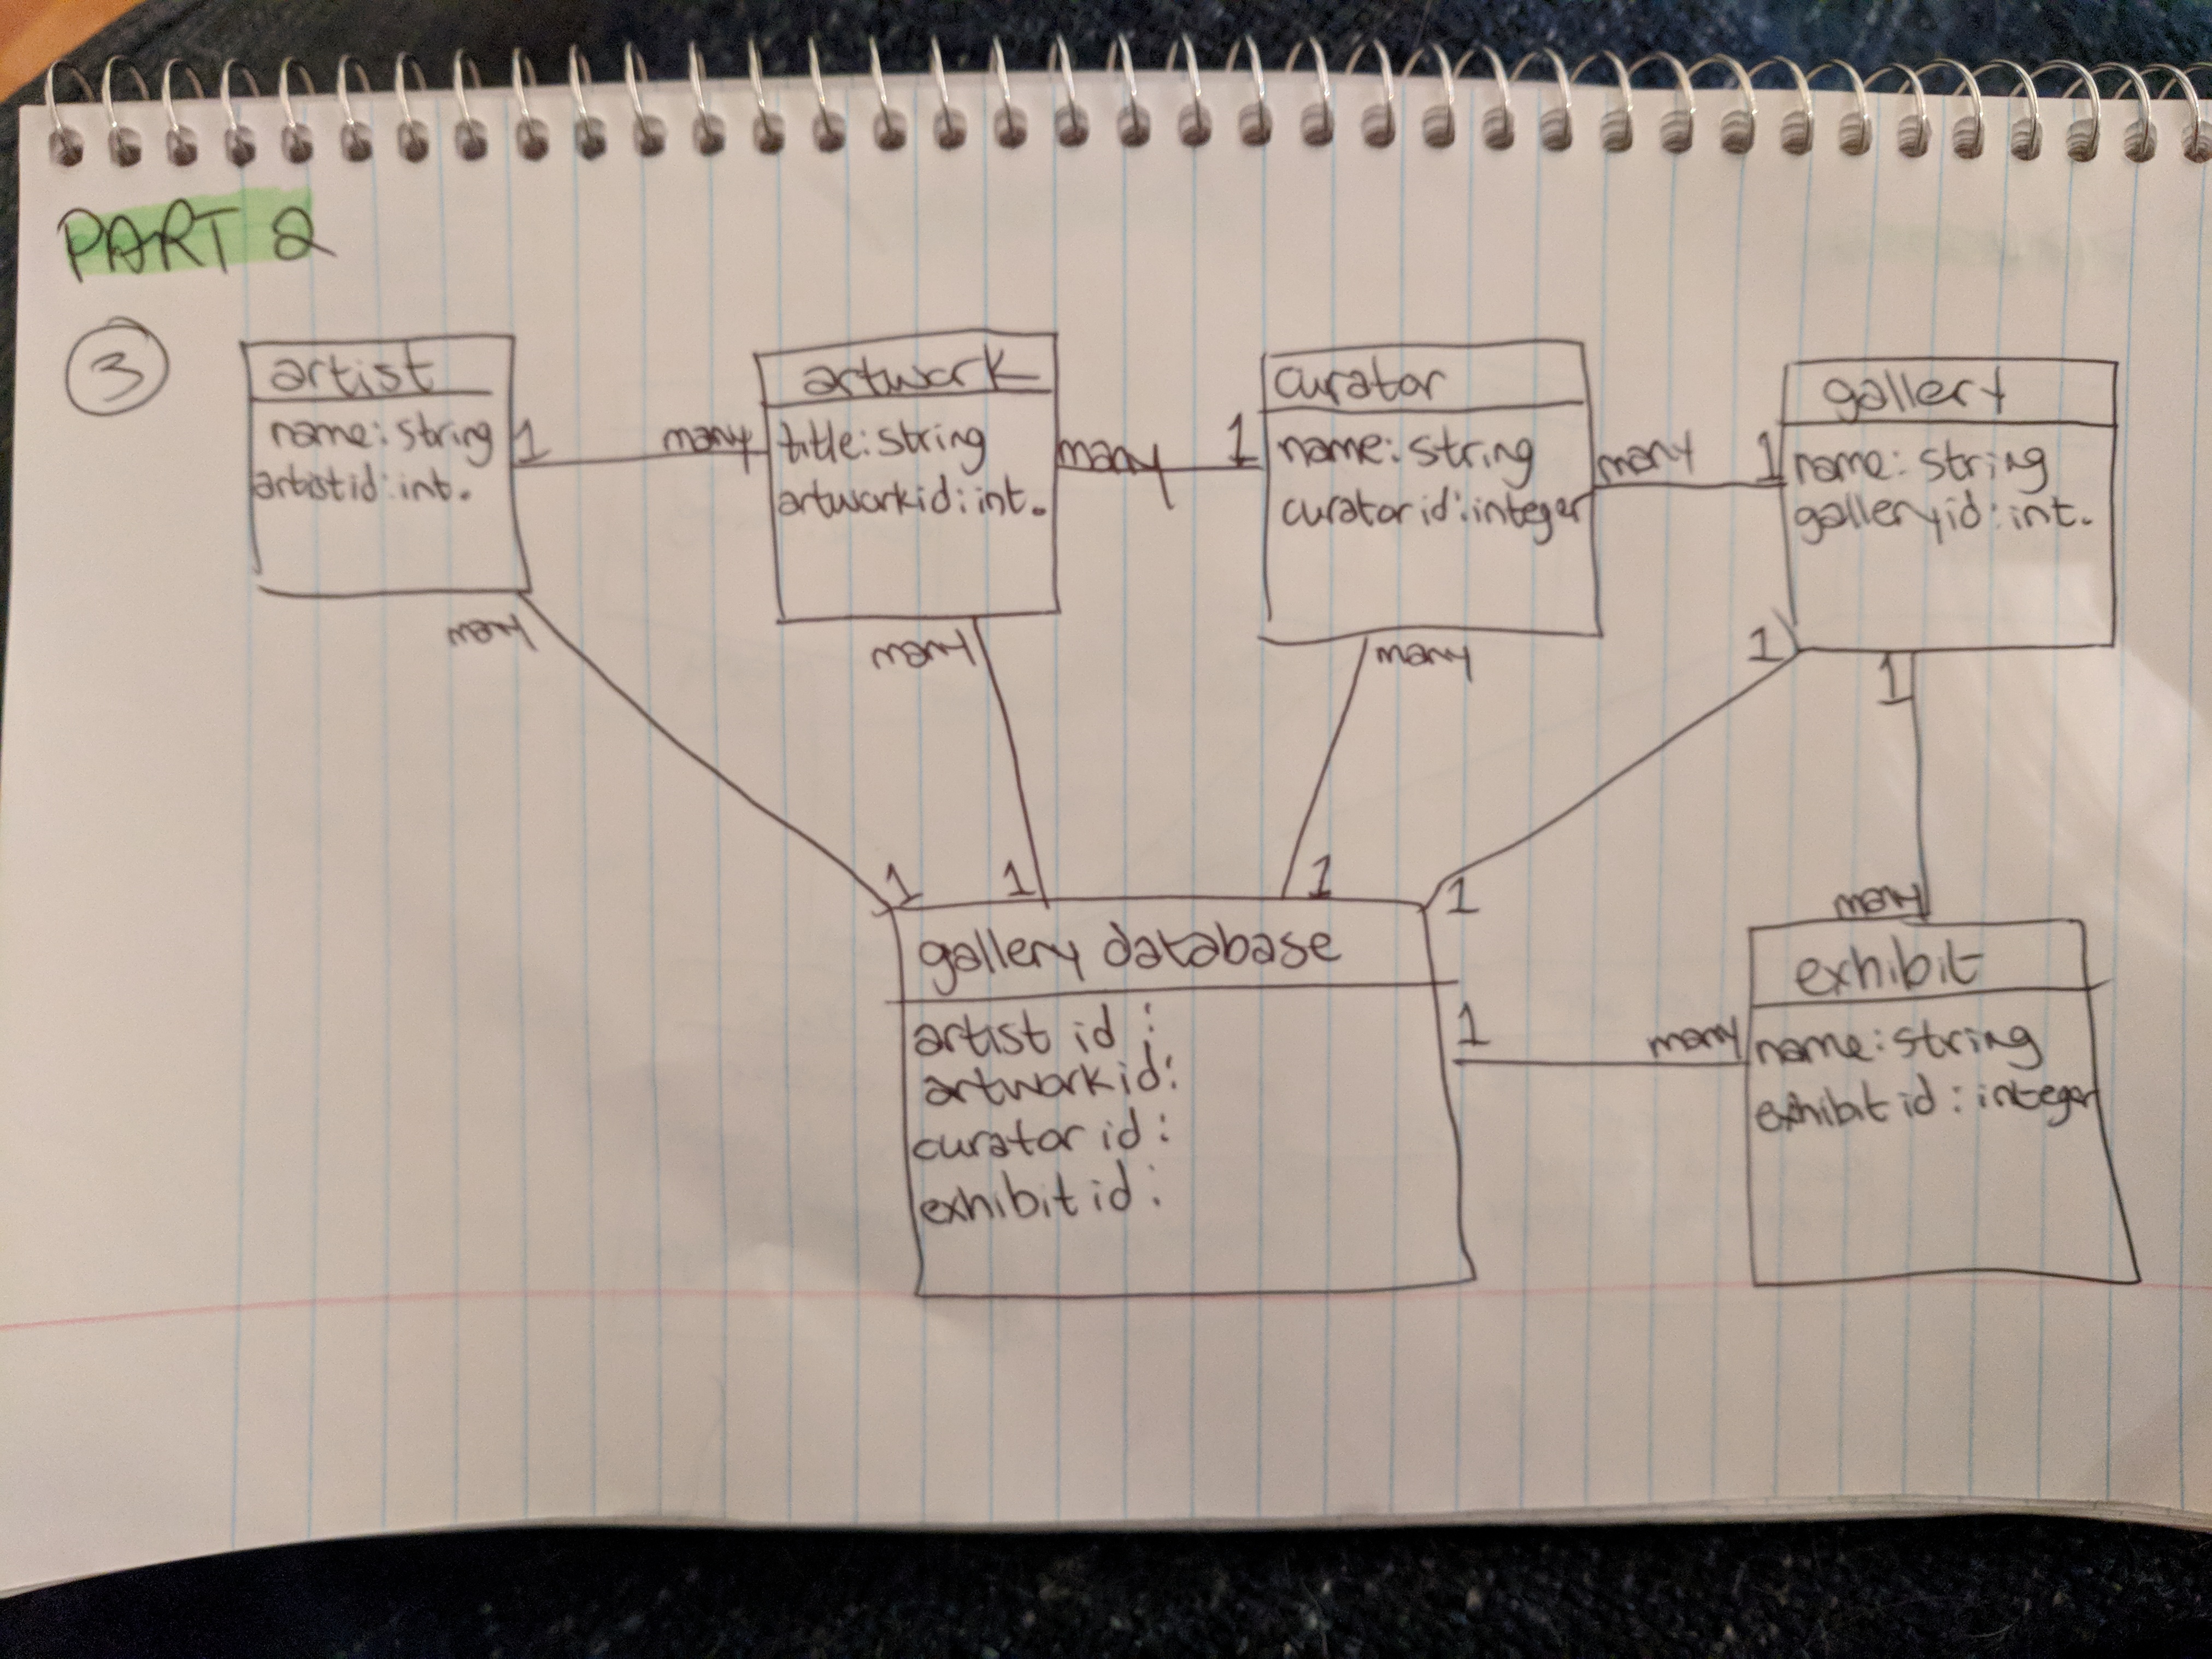 PART 2
3
artist
name: string
artist id: int.
1
many
artwork
title: string
artwork id: int.
many
1
curator
name: string
curator id: integer
many
1
gallery
name: string
gallery id: int.
many
many
many
1
1
1
1
1
1
many
gallery database
artist id:
artwork id:
curator id:
exhibit id:
1
many
exhibit
name: string
exhibit id: integer